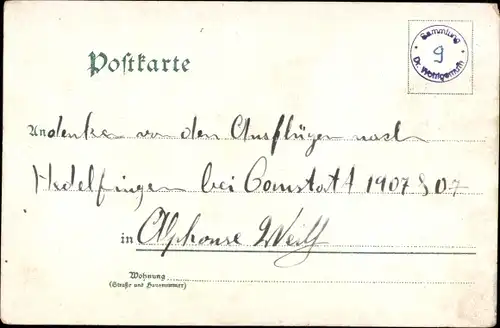 Sammlung
9
Dr. Wohlgemuth
Postkarte
Andenken von den Ausflügen nach
Hedelfingen bei Cannstatt 1907
in Alphonse Weill
Wohnung
(Straße und Hausnummer)